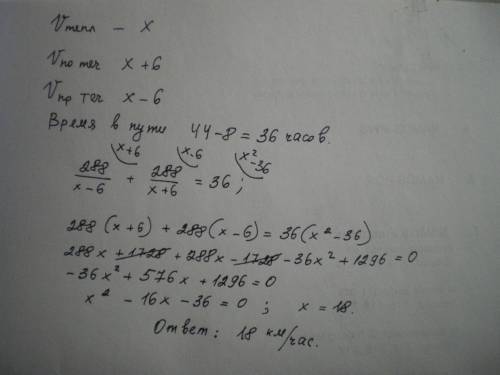 Vтепл – x
Vпо теч x + 6
Vпр теч x – 6
Время в пути 44 – 8 = 36 часов.
x+6 x-6 x²-36
288/(x-6) + 288/(x+6) = 36 ;
288 (x+6) + 288 (x-6) = 36 (x² - 36)
288x + 1728 + 288x - 1728 - 36x² + 1296 = 0
-36x² + 576x + 1296 = 0
x² - 16x - 36 = 0 ; x = 18.
Ответ: 18 км/час.